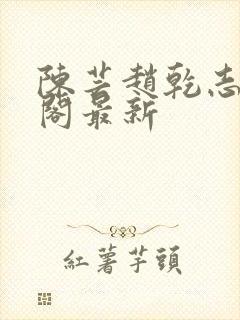 陳芸趙乾志
閣最新
紅薯芋頭